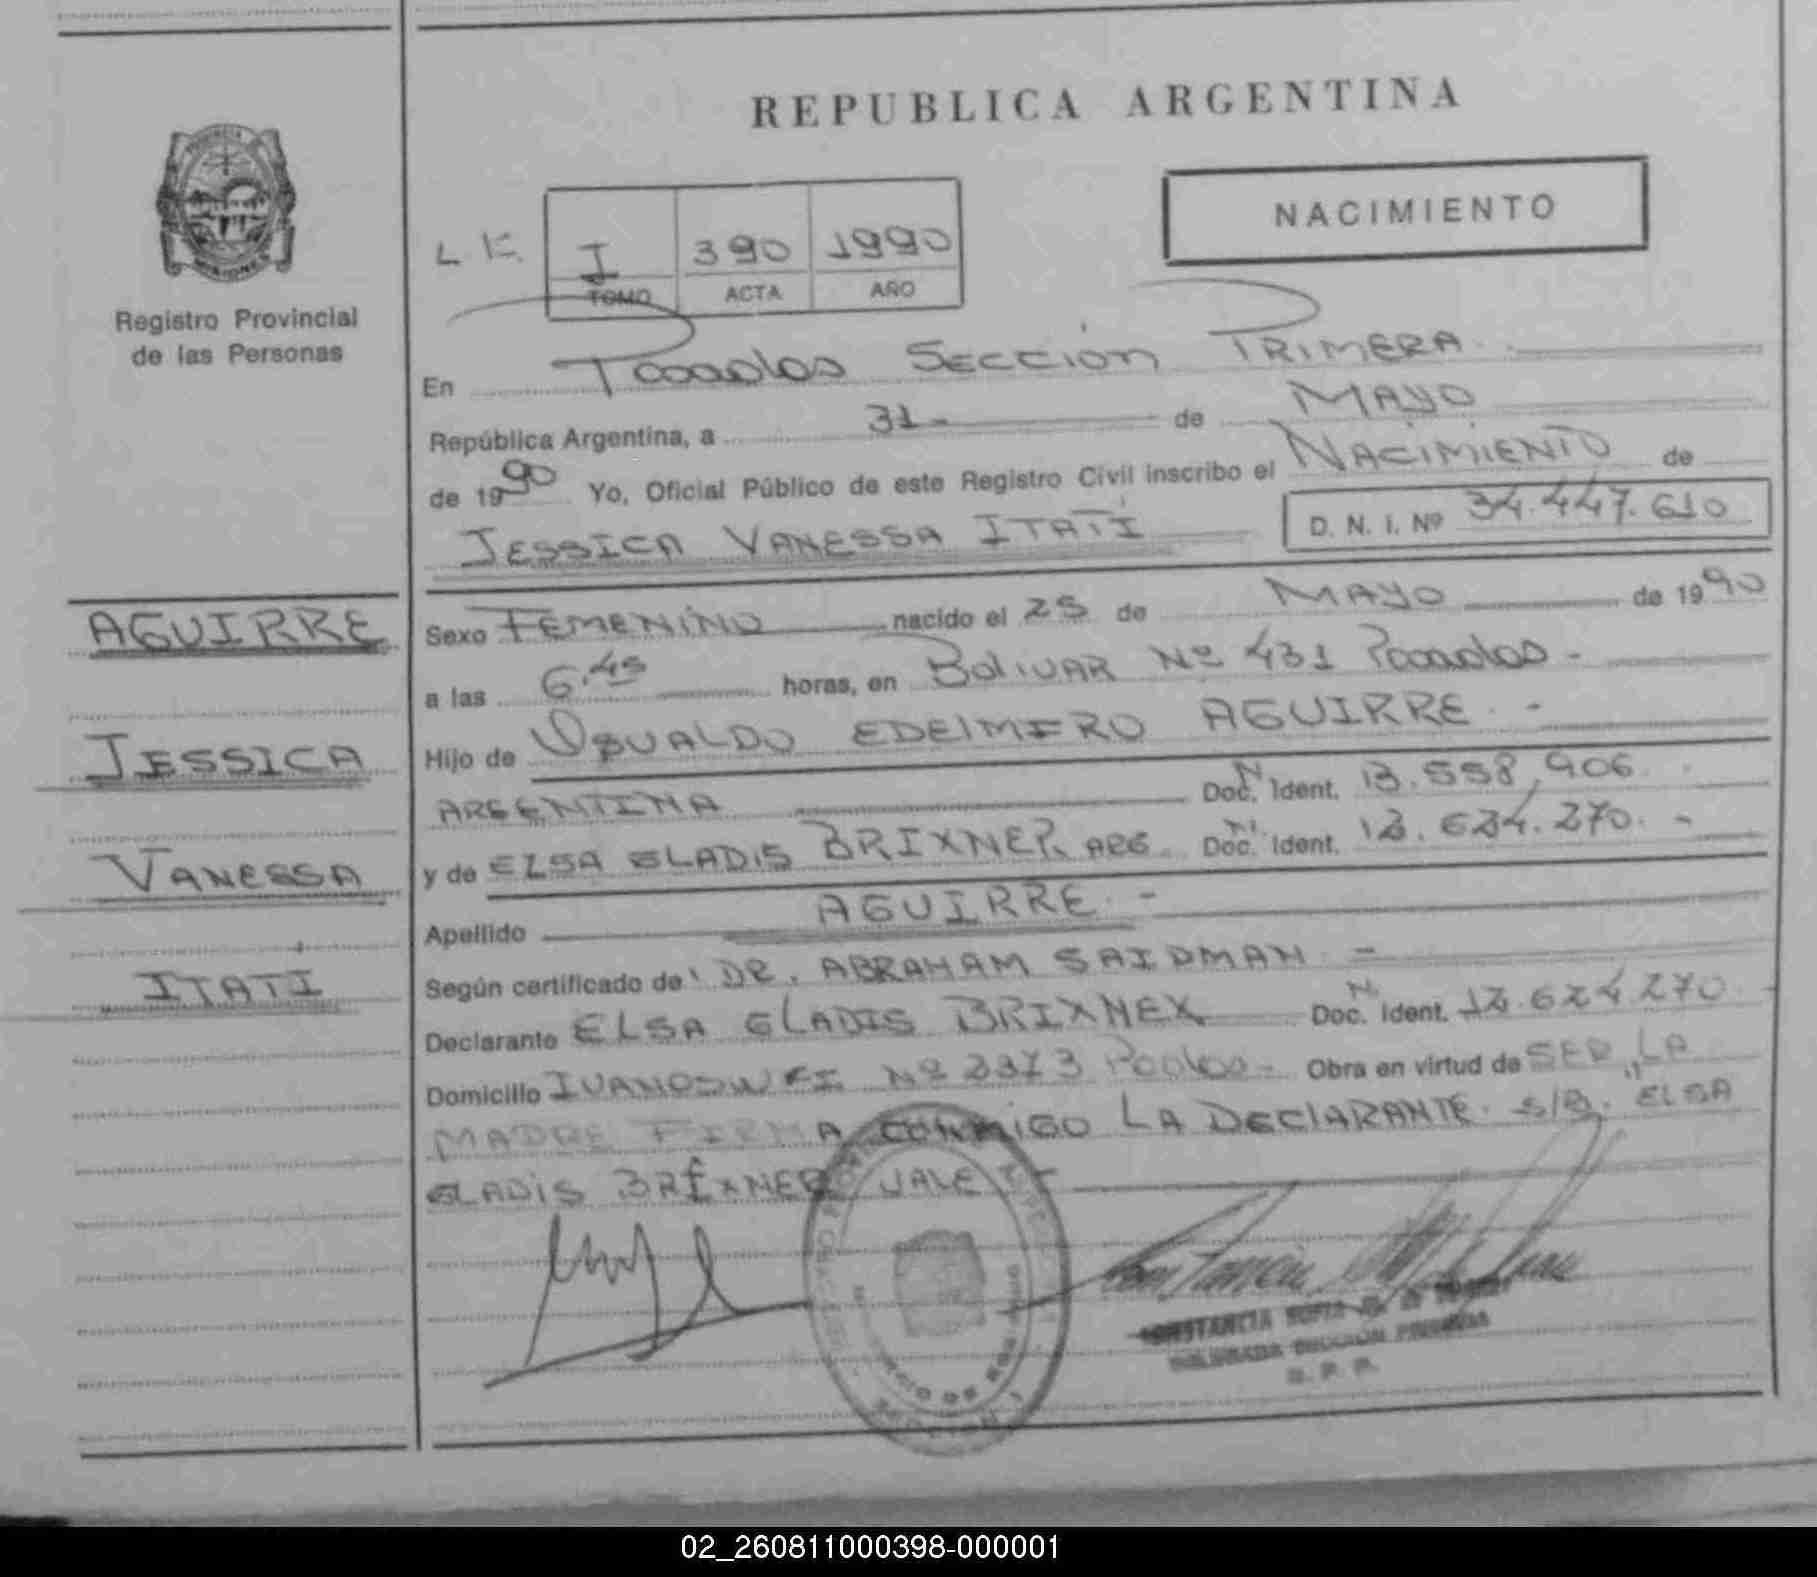 REPUBLICA ARGENTINA
NACIMIENTO
PROVINCIA
MISIONES
Registro Provincial
de las Personas
L. E. I 390 1990
TOMO ACTA AÑO
En Posadas SECCION PRIMERA.
República Argentina, a 31- de MAYO
de 1990 Yo, Oficial Público de este Registro Civil inscribo el NACIMIENTO de
JESSICA VANESSA ITATÍ D. N. I. Nº 34.447.610
AGUIRRE
Sexo FEMENINO nacido el 25 de MAYO de 1990
a las 6.45 horas, en BOLIVAR Nº 431 Posadas -
JESSICA
Hijo de OSVALDO EDELMIRO AGUIRRE. -
ARGENTINA Doc. N Ident. 13.558.906.
VANESSA
y de ELSA GLADIS BRIXNER ARG. Doc. Ident. 12.624.270. -
Apellido AGUIRRE. -
ITATÍ
Según certificado de DR. ABRAHAM SAIDMAN -
Declarante ELSA GLADIS BRIXNEX Doc. N. Ident. 12.624.270
Domicilio Nº Obra en virtud de SER LA
MADRE FIRMA CONMIGO LA DECLARANTE. S/B. "ELSA
GLADIS BRIXNER VALE -
CONSTANCIA
DELEGADA SECCION PRIMERA
R. P. P.
02_260811000398-000001